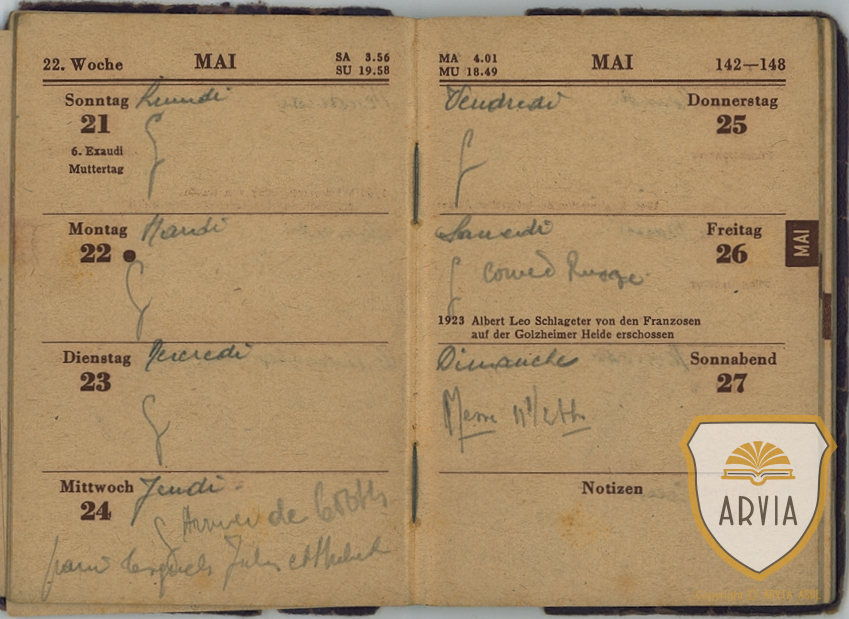 22. Woche MAI SA 3.56
SU 19.58
Sonntag Lundi
21
6. Exaudi
Muttertag
Montag Mardi
22
Dienstag Mercredi
23
Mittwoch Jeudi
24
de
parmi lesquels Jules et
MA 4.01 MAI 142—148
MU 18.49
Vendredi Donnerstag
25
Samedi Freitag
26
MAI
1923 Albert Leo Schlageter von den Franzosen
auf der Golzheimer Heide erschossen
Dimanche Sonnabend
27
Messe 11 1/2
Notizen
ARVIA